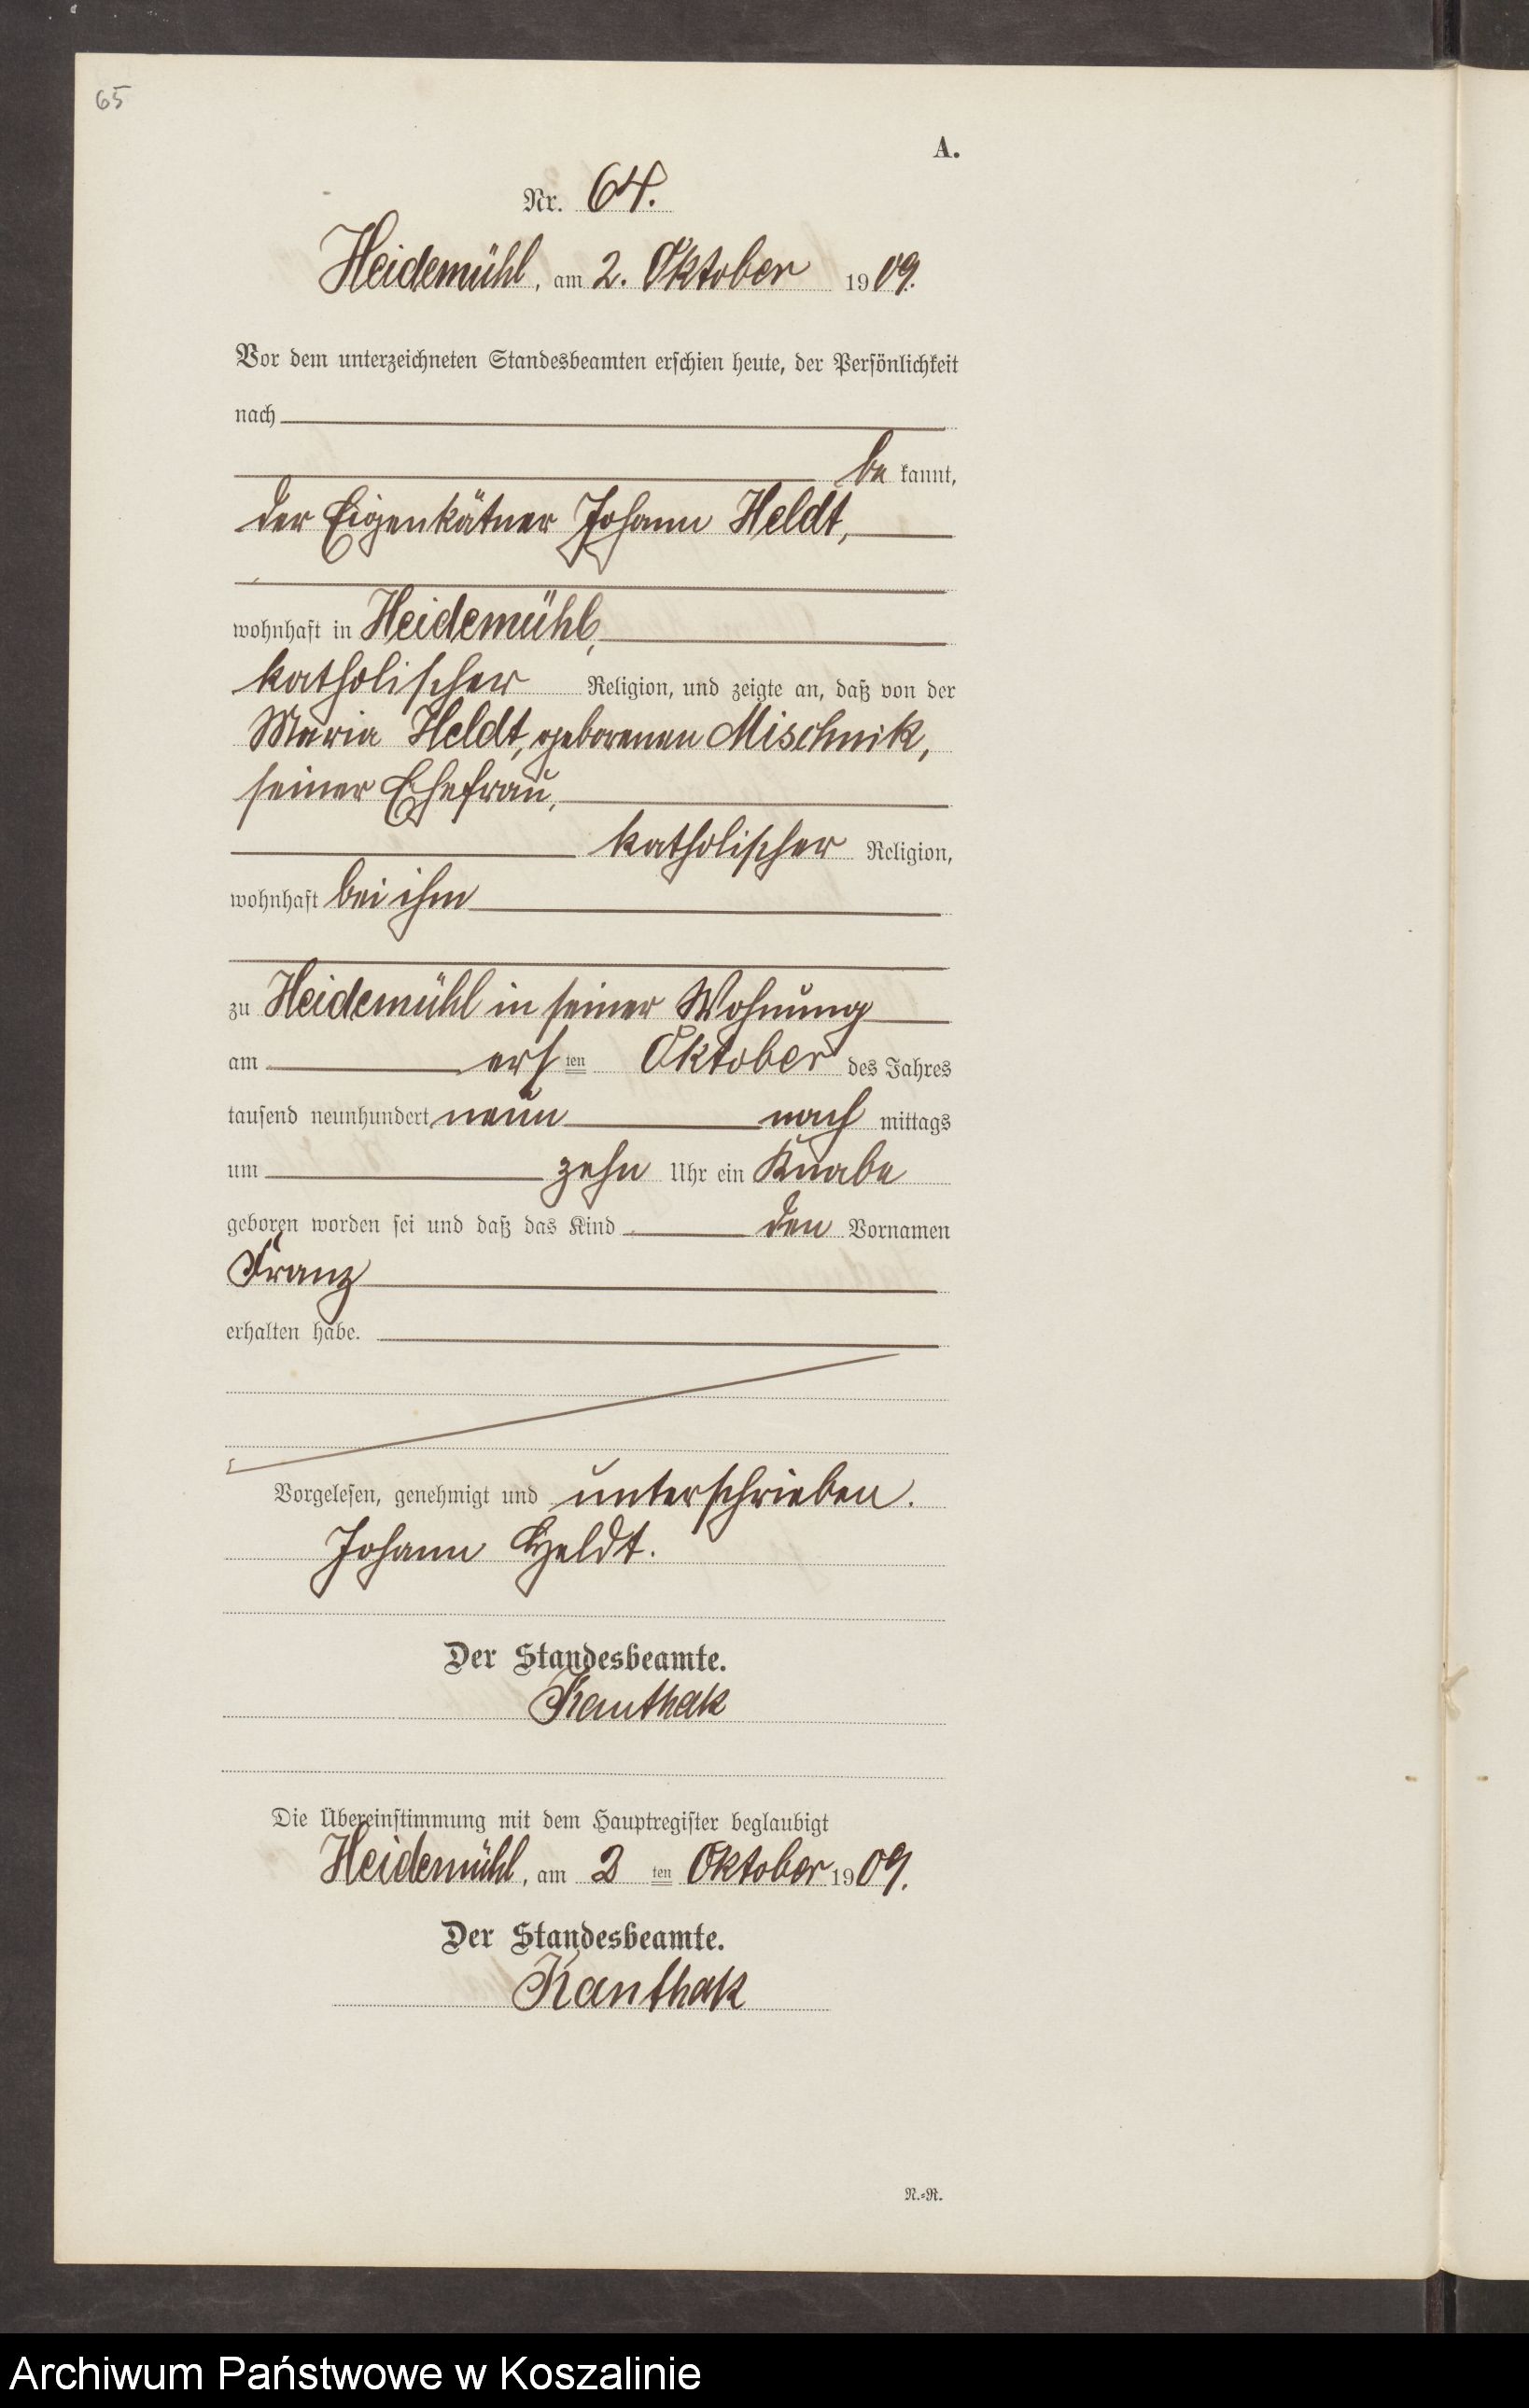 65
A.
Nr. 64.
Heidemühl, am 2. Oktober 1909.
Vor dem unterzeichneten Standesbeamten erschien heute, der Persönlichkeit
nach
be kannt,
der Eigenkätner Johann Heldt,
wohnhaft in Heidemühl,
katholischer Religion, und zeigte an, daß von der
Maria Heldt, geborenen Mischnik,
seiner Ehefrau,
katholischer Religion,
wohnhaft bei ihm
zu Heidemühl in seiner Wohnung
am ersten Oktober des Jahres
tausend neunhundert neun nachmittags
um zehn Uhr ein Knabe
geboren worden sei und daß das Kind den Vornamen
Franz
erhalten habe.
Vorgelesen, genehmigt und unterschrieben.
Johann Heldt.
Der Standesbeamte.
Kanthak
Die Übereinstimmung mit dem Hauptregister beglaubigt
Heidemühl, am 2ten Oktober 1909.
Der Standesbeamte.
Kanthak
N.=R.
Archiwum Państwowe w Koszalinie